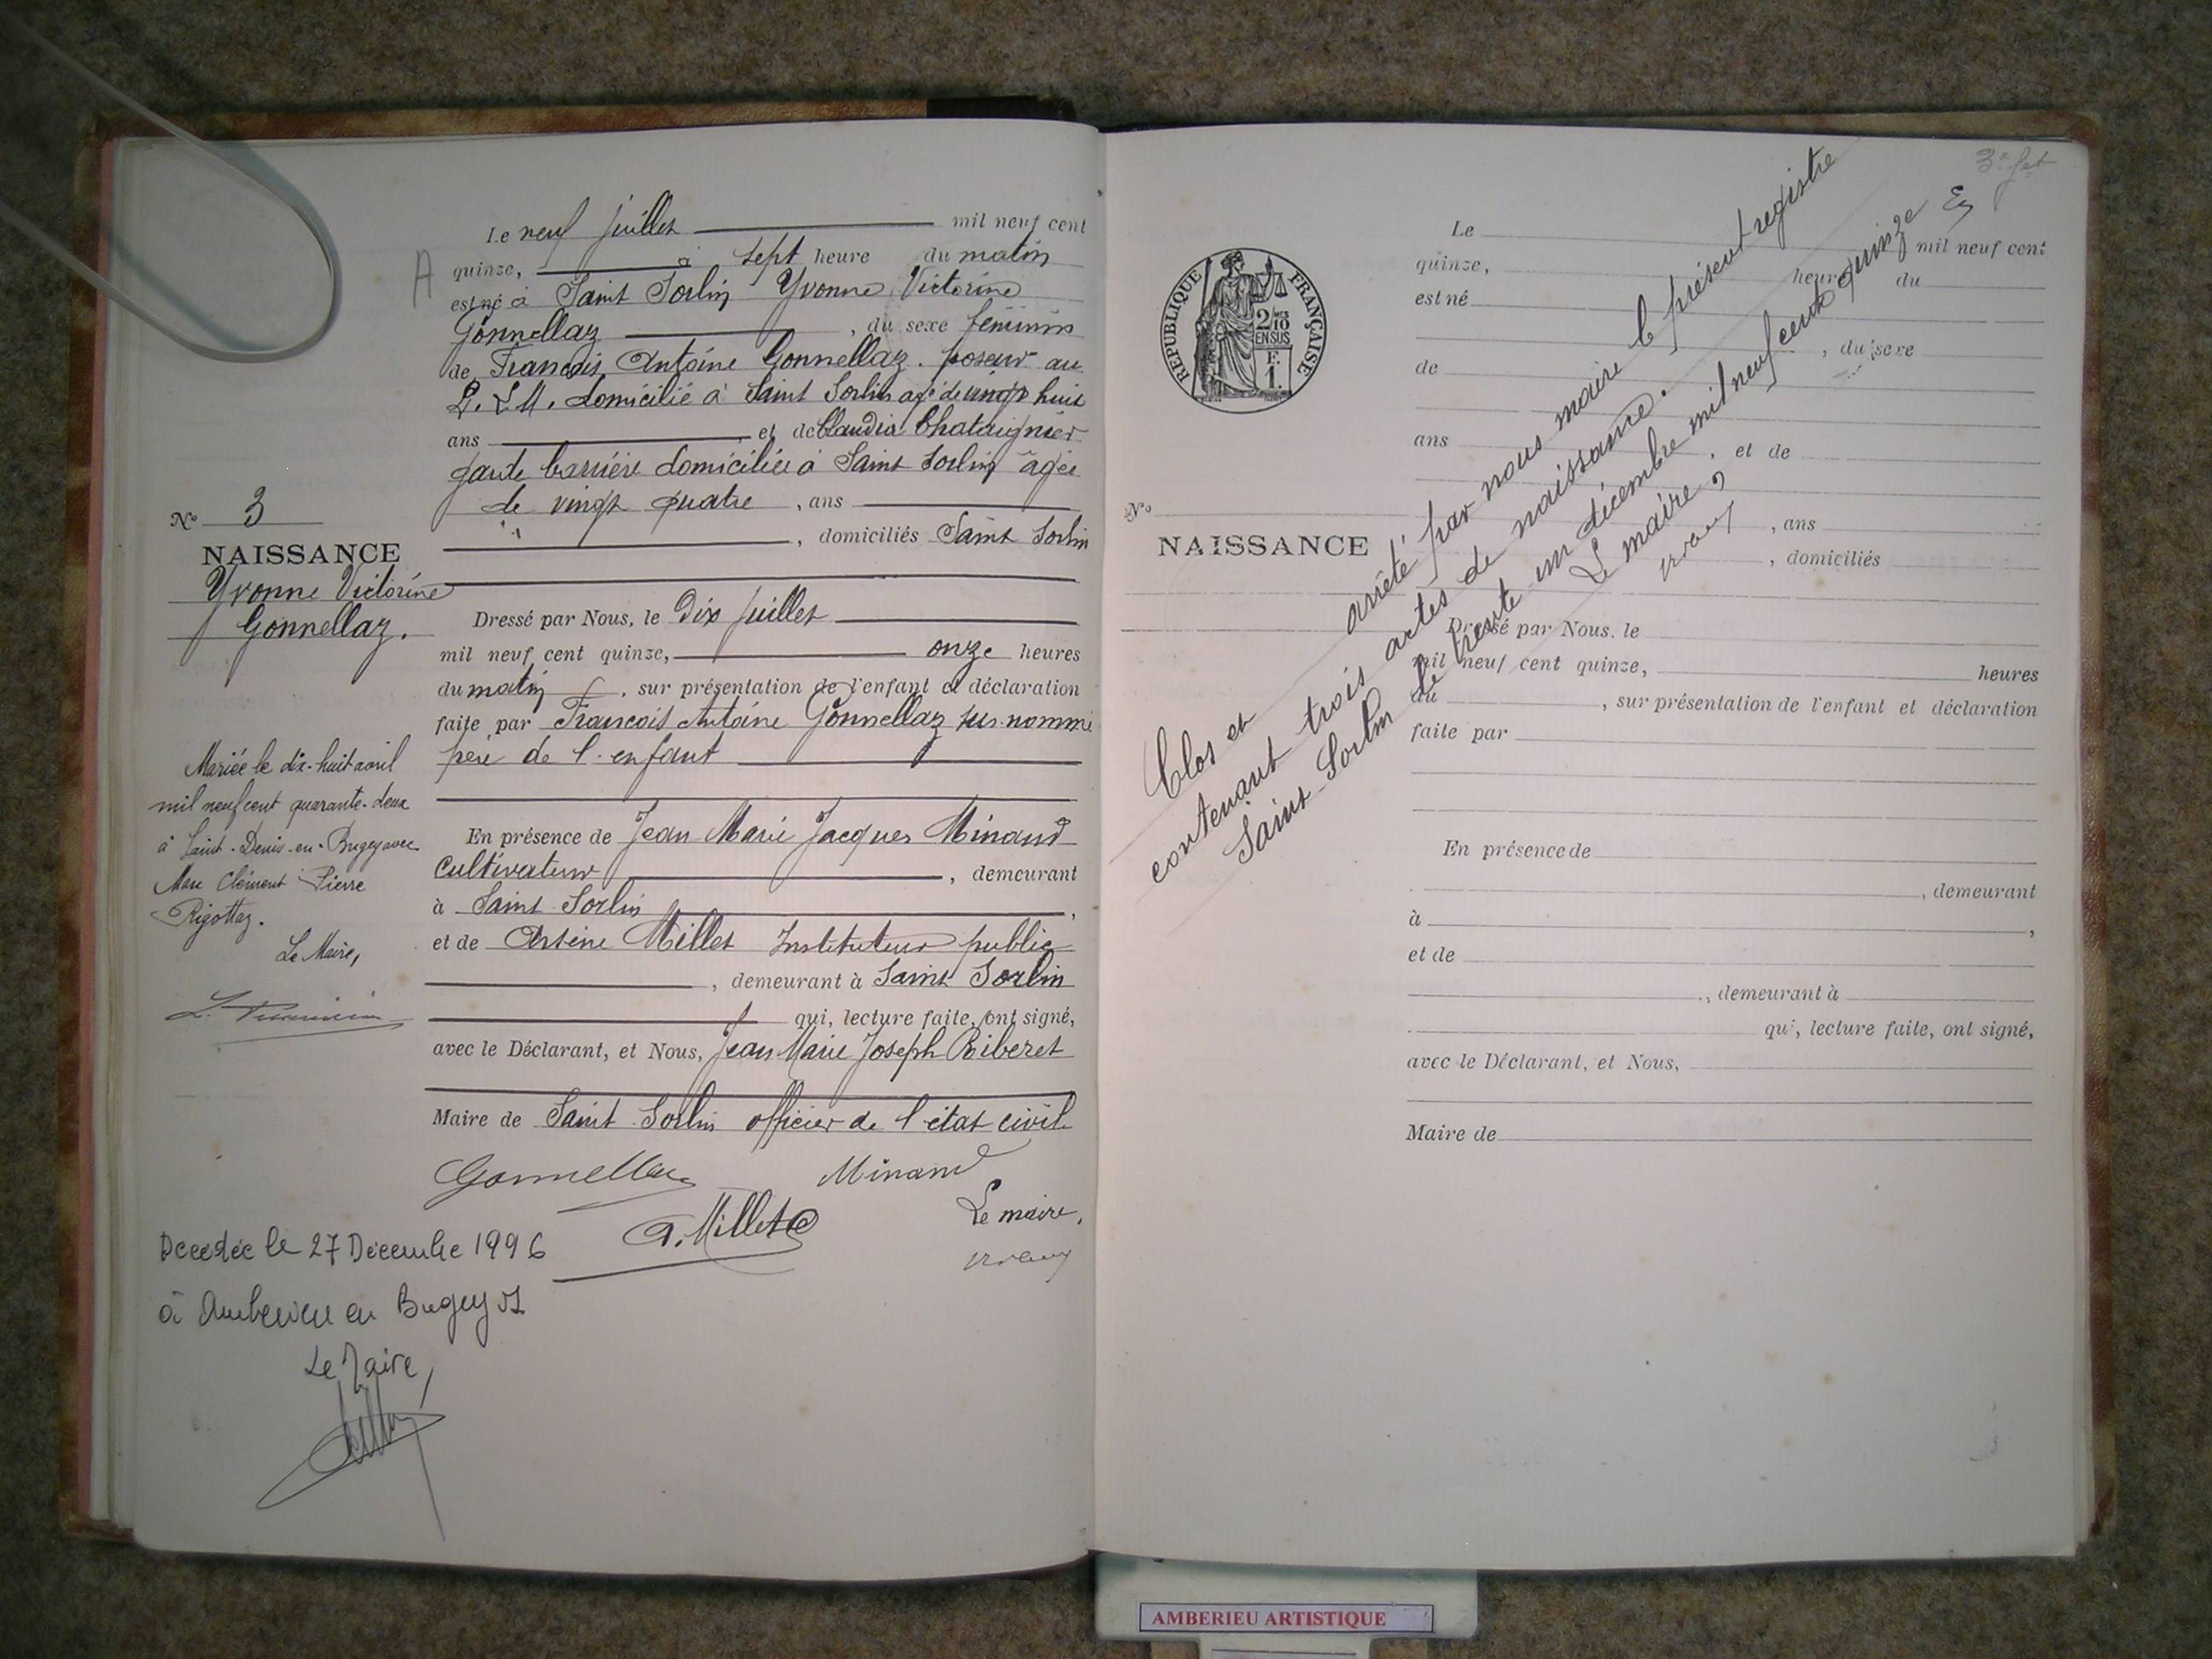 Le neuf juillet mil neuf cent
A quinze, à sept heure du matin
est né à Saint Sorlin Yvonne Victorine
Gonnellaz , du sexe féminin
de François Antoine Gonnellaz. poseur au
P. L M. domicilié à Saint Sorlin agé de vingt huit
ans et de Claudia Chataignier
garde barrière domiciliée à Saint Sorlin âgée
de vingt quatre , ans
, domiciliés Saint Sorlin
N° 3
NAISSANCE
Yvonne Victorine
Gonnellaz.
Dressé par Nous, le Dix juillet
mil neuf cent quinze, onze heures
du matin , sur présentation de l'enfant et déclaration
faite par François Antoine Gonnellaz sus-nommé
père de l'enfant
Mariée le dix-huit avril
mil neuf cent quarante-deux
à Saint-Denis-en-Bugey avec
Marc Clément Pierre
Rigottaz.
Le Maire,
En présence de Jean Marie Jacques Minand
Cultivateur , demeurant
à Saint Sorlin ,
et de Arsène Millet Instituteur public
, demeurant à Saint Sorlin
qui, lecture faite, ont signé,
avec le Déclarant, et Nous, Jean Marie Joseph Riberet
Maire de Saint Sorlin officier de l'état civil
Gonnellaz Minand
A. Millet Le maire,
Décédée le 27 Décembre 1996
à Ambérieu en Bugey 01
Le Maire,
REPUBLIQUE FRANÇAISE
2/10 EN SUS
F. 1.
Le mil neuf cent
quinze, heure du
est né
, du sexe
de
ans , et de
N°
NAISSANCE
, ans
, domiciliés
Dressé par Nous, le
mil neuf cent quinze, heures
du , sur présentation de l'enfant et déclaration
faite par
En présence de
, demeurant
à ,
et de
, demeurant à
qui, lecture faite, ont signé,
avec le Déclarant, et Nous,
Maire de
Clos et arrêté par nous maire le présent registre
contenant trois actes de naissance.
Saint-Sorlin le trente un décembre mil neuf cent quinze
Le maire,
AMBERIEU ARTISTIQUE